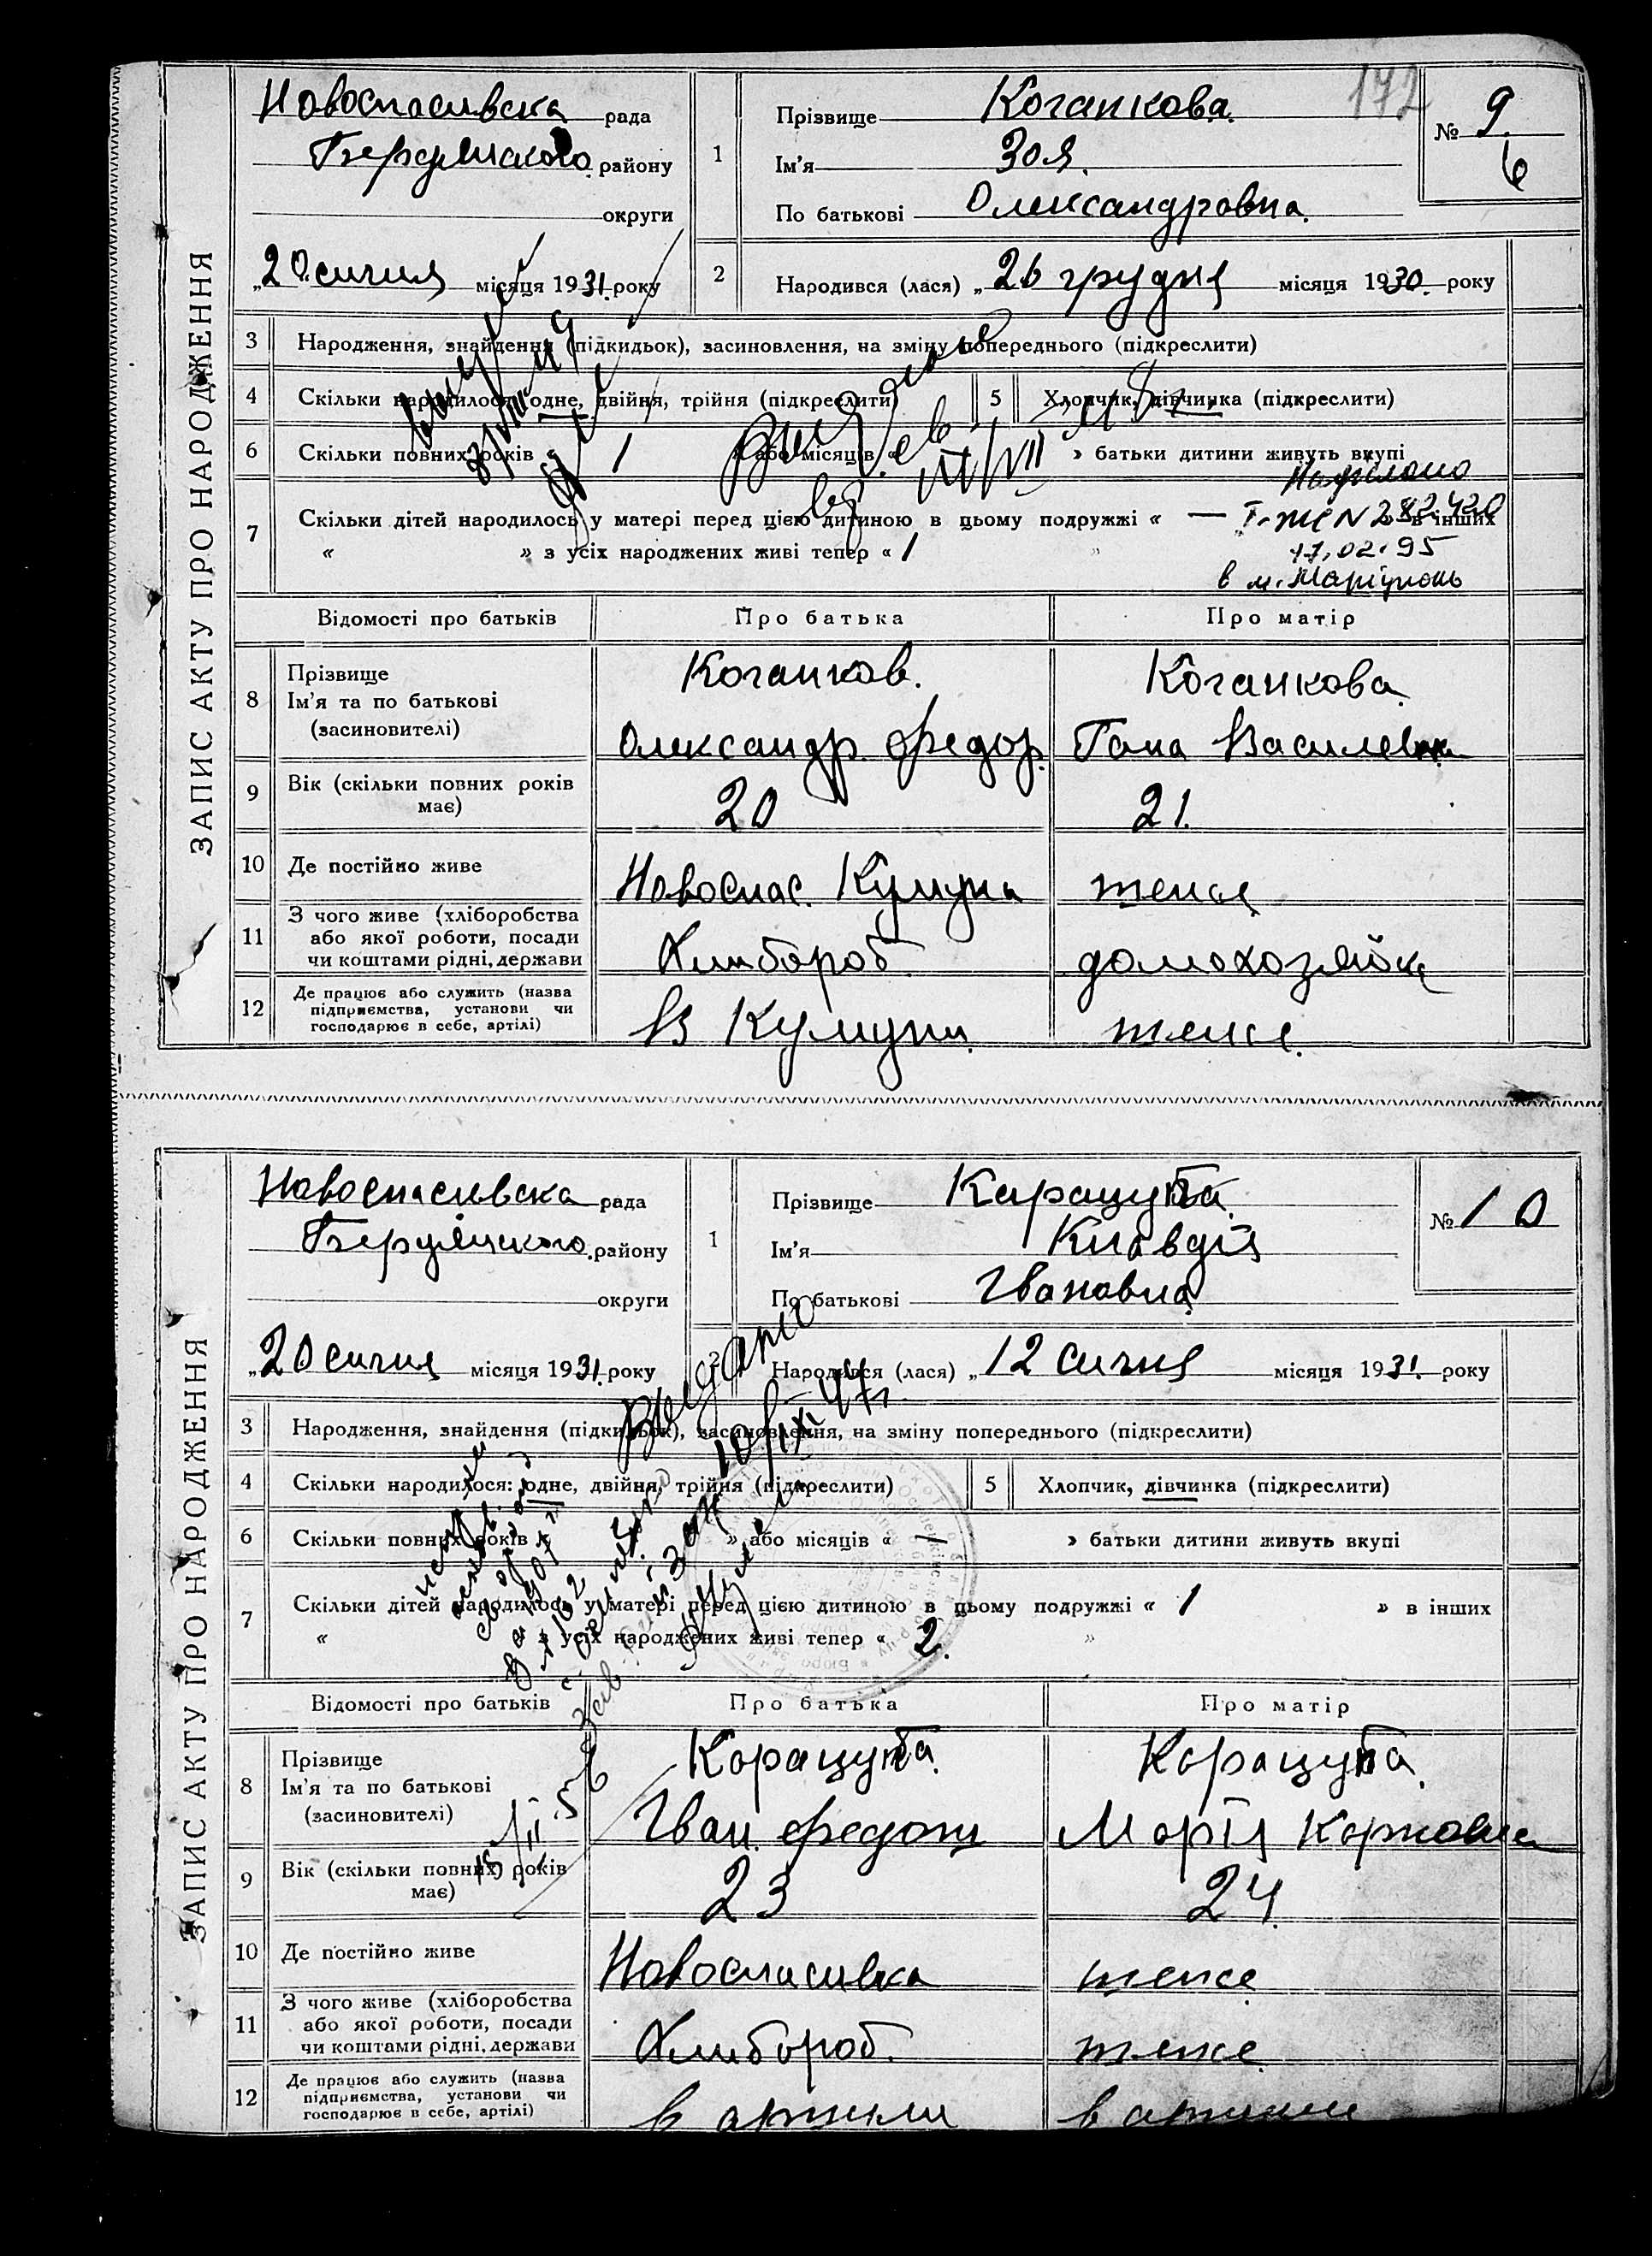 172
ЗАПИС АКТУ ПРО НАРОДЖЕННЯ
Новоспасивска рада
Бердянского району
округи
„20 сичня місяця 1931. року
1
Прізвище Коганкова.
Ім'я Зоя.
По батькові Олександровна.
№ 9.
6
2 Народився (лася) „26 грудня місяця 1930. року
3 Народження, знайдення (підкидьок), засиновлення, на зміну попереднього (підкреслити)
4 Скільки народилося: одне, двійня, трійня (підкреслити)
5 Хлопчик, дівчинка (підкреслити)
6 Скільки повних років « 1 » або місяців « » батьки дитини живуть вкупі
Надіслано
7 Скільки дітей народилось у матері перед цією дитиною в цьому подружжі « — » в інших
I-ЖС N 282420
« » з усіх народжених живі тепер « 1 »
17.02.95
в м. Маріуполь
Відомості про батьків Про батька Про матір
8 Прізвище
Ім'я та по батькові
(засиновителі)
Коганков. Коганкова.
Олександр. Федор. Гана Василевна
9 Вік (скільки повних років має)
20 21.
10 Де постійно живе
Новоспас. Кумуна теже
11 З чого живе (хліборобства
або якої роботи, посади
чи коштами рідні, держави
Хлибороб домохозяйка
12 Де працює або служить (назва
підприємства, установи чи
господарює в себе, артілі)
В Кумуни. теже.
ЗАПИС АКТУ ПРО НАРОДЖЕННЯ
Новоспасивска рада
Бердянского. району
округи
„20 сичня місяця 1931. року
1
Прізвище Карацуба.
Ім'я Клавдія
По батькові Івановна.
№ 10
2 Народився (лася) „12 сичня місяця 1931. року
Видано
10/IX 47г.
3 Народження, знайдення (підкидьок), засиновлення, на зміну попереднього (підкреслити)
4 Скільки народилося: одне, двійня, трійня (підкреслити)
5 Хлопчик, дівчинка (підкреслити)
6 Скільки повних років « » або місяців « 1 » батьки дитини живуть вкупі
7 Скільки дітей народилось у матері перед цією дитиною в цьому подружжі « 1 » в інших
« » з усіх народжених живі тепер « 2. »
Відомості про батьків Про батька Про матір
8 Прізвище
Ім'я та по батькові
(засиновителі)
Корацуба. Корацуба.
Іван. Федот Марія Карповна
15/II-56
9 Вік (скільки повних років має)
23 24.
10 Де постійно живе
Новоспасивка теже
11 З чого живе (хліборобства
або якої роботи, посади
чи коштами рідні, держави
Хлибороб. теже.
12 Де працює або служить (назва
підприємства, установи чи
господарює в себе, артілі)
в артили в артили